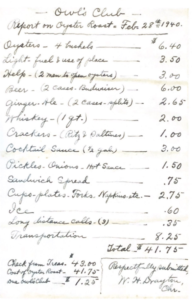 Owl's Club
Report on Oyster Roast - Feb. 28th 1940.
Oysters - 4 bushels $ 6.40
Light, fuel & use of place 3.50
Help - (2 men to open oysters) 3.00
Beer - (2 cases Budweiser) 6.00
Ginger Ale - (2 cases splits) 2.65
Whiskey - (1 qt.) 2.00
Crackers - (Ritz & Saltines) 1.00
Cocktail Sauce (½ gal) 3.00
Pickles, Onions, Hot Sauce 1.50
Sandwich Spread .75
Cups, plates, Forks, Napkins etc. - 2.75
Ice .60
Long distance calls (3) .35
Transportation 8.25
Total $ 41.75
Check from Treas. $ 43.00
Cost of Oyster Roast - 41.75
$ 1.25
Respectfully submitted,
W. H.
Chr.